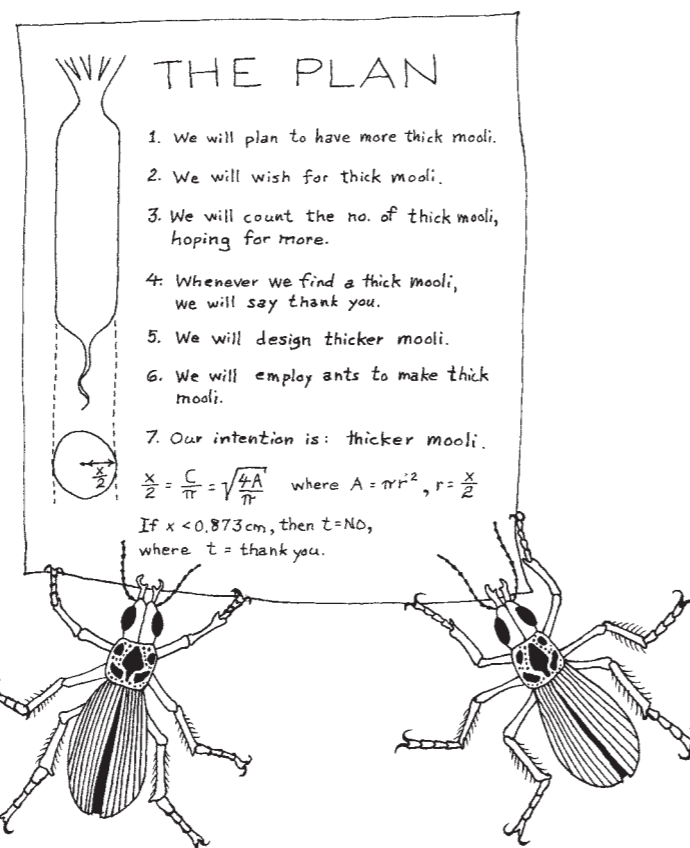 THE PLAN
1. We will plan to have more thick mooli.
2. We will wish for thick mooli.
3. We will count the no. of thick mooli,
hoping for more.
4. Whenever we find a thick mooli,
we will say thank you.
5. We will design thicker mooli.
6. We will employ ants to make thick
mooli.
7. Our intention is: thicker mooli.
x/2
x/2 = C/π = √(4A/π) where A = πr², r = x/2
If x < 0.873cm, then t=NO,
where t = thank you.